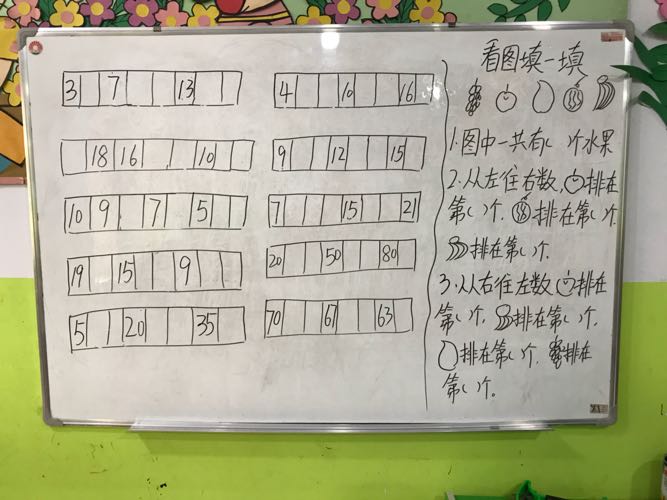 3 7 13
4 10 16
18 16 10
9 12 15
10 9 7 5
7 15 21
19 15 9
20 50 80
5 20 35
70 67 63
看图填一填
1.图中一共有( )个水果
2.从左往右数,排在
第( )个,排在第( )个,
排在第( )个.
3.从右往左数排在
第( )个,排在第( )个,
排在第( )个,排在
第( )个。